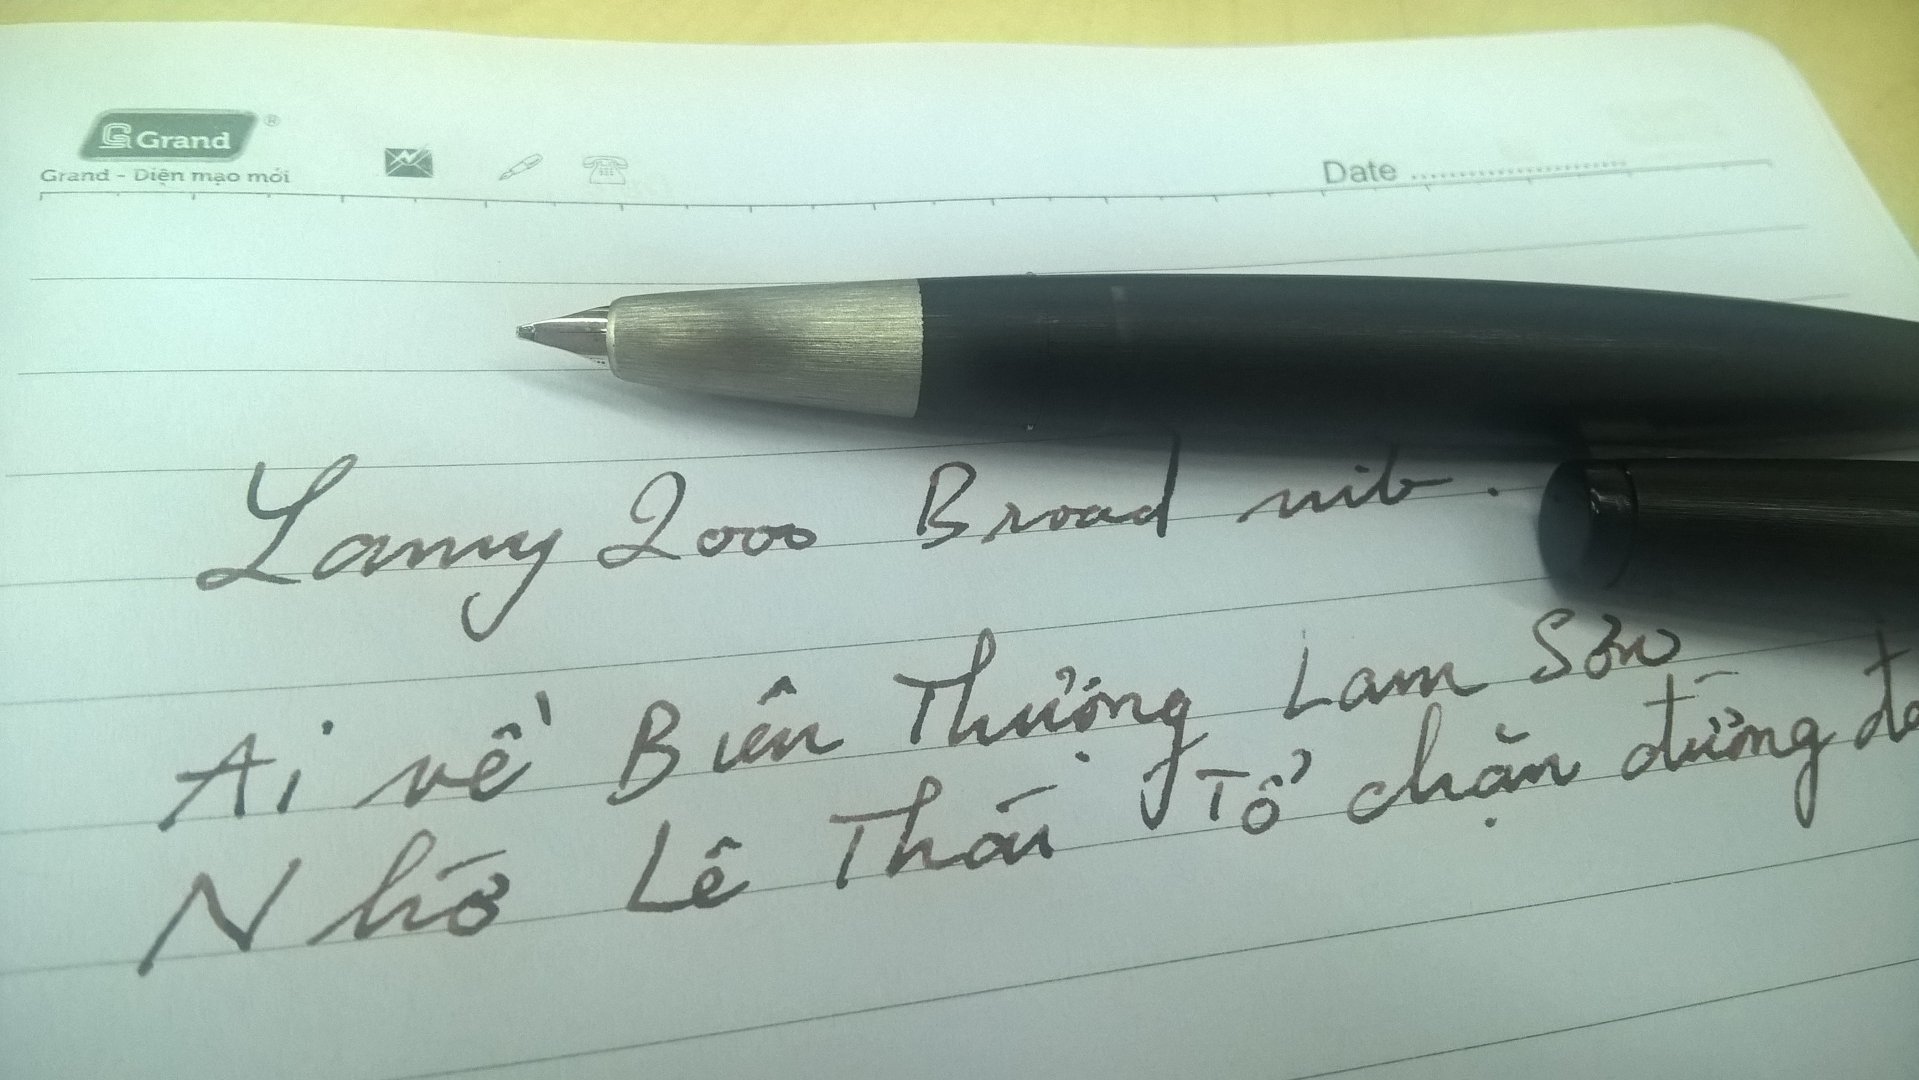 Grand ®
Grand - Diện mạo mới
Date
Lamy 2000 Broad nib.
Ai về Biên Thượng Lam Sơn
Nhớ Lê Thái Tổ chặn đường